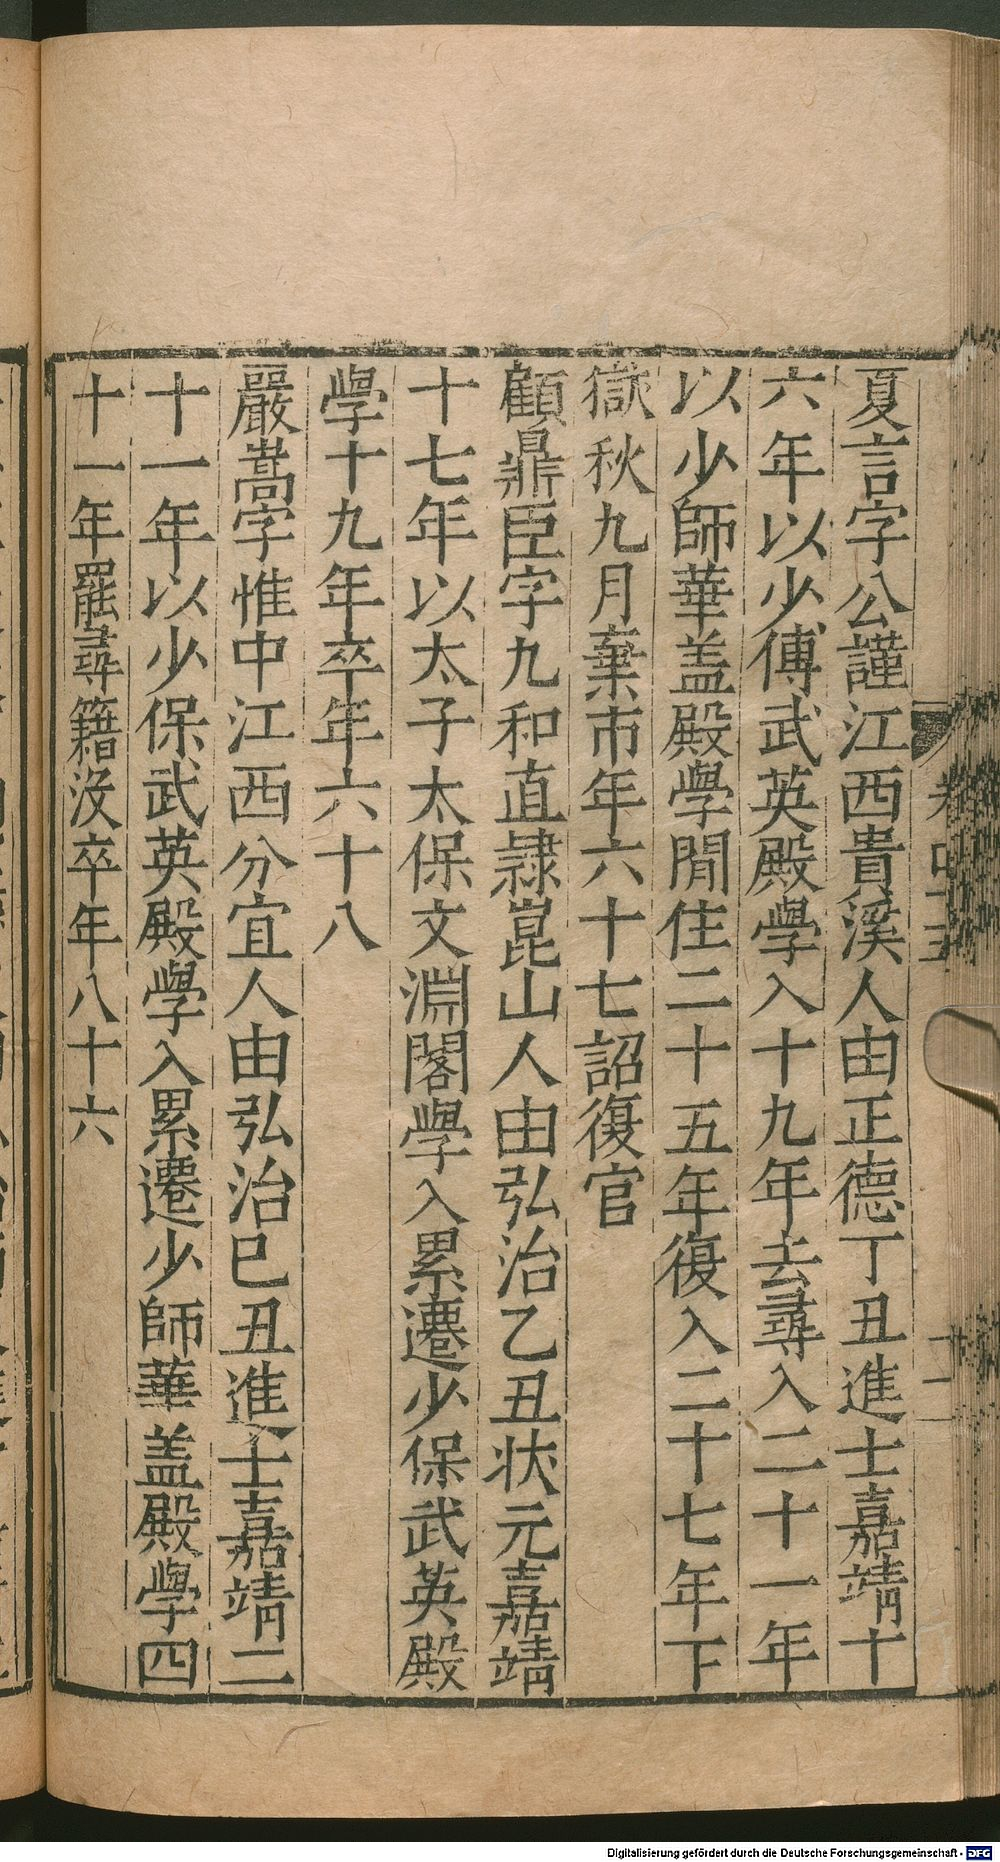 夏言字公謹江西貴溪人由正德丁丑進士嘉靖十
六年以少傅武英殿學入十九年去尋入二十一年
以少師華盖殿學閒住二十五年復入二十七年下
獄秋九月棄市年六十七詔復官
顧鼎臣字九和直隷崑山人由弘治乙丑状元嘉靖
十七年以太子太保文淵閣學入累遷少保武英殿
學十九年卒年六十八
嚴嵩字惟中江西分宜人由弘治巳丑進士嘉靖二
十一年以少保武英殿學入累遷少師華盖殿學四
十一年罷尋籍没卒年八十六
Digitalisierung gefördert durch die Deutsche Forschungsgemeinschaft - DFG